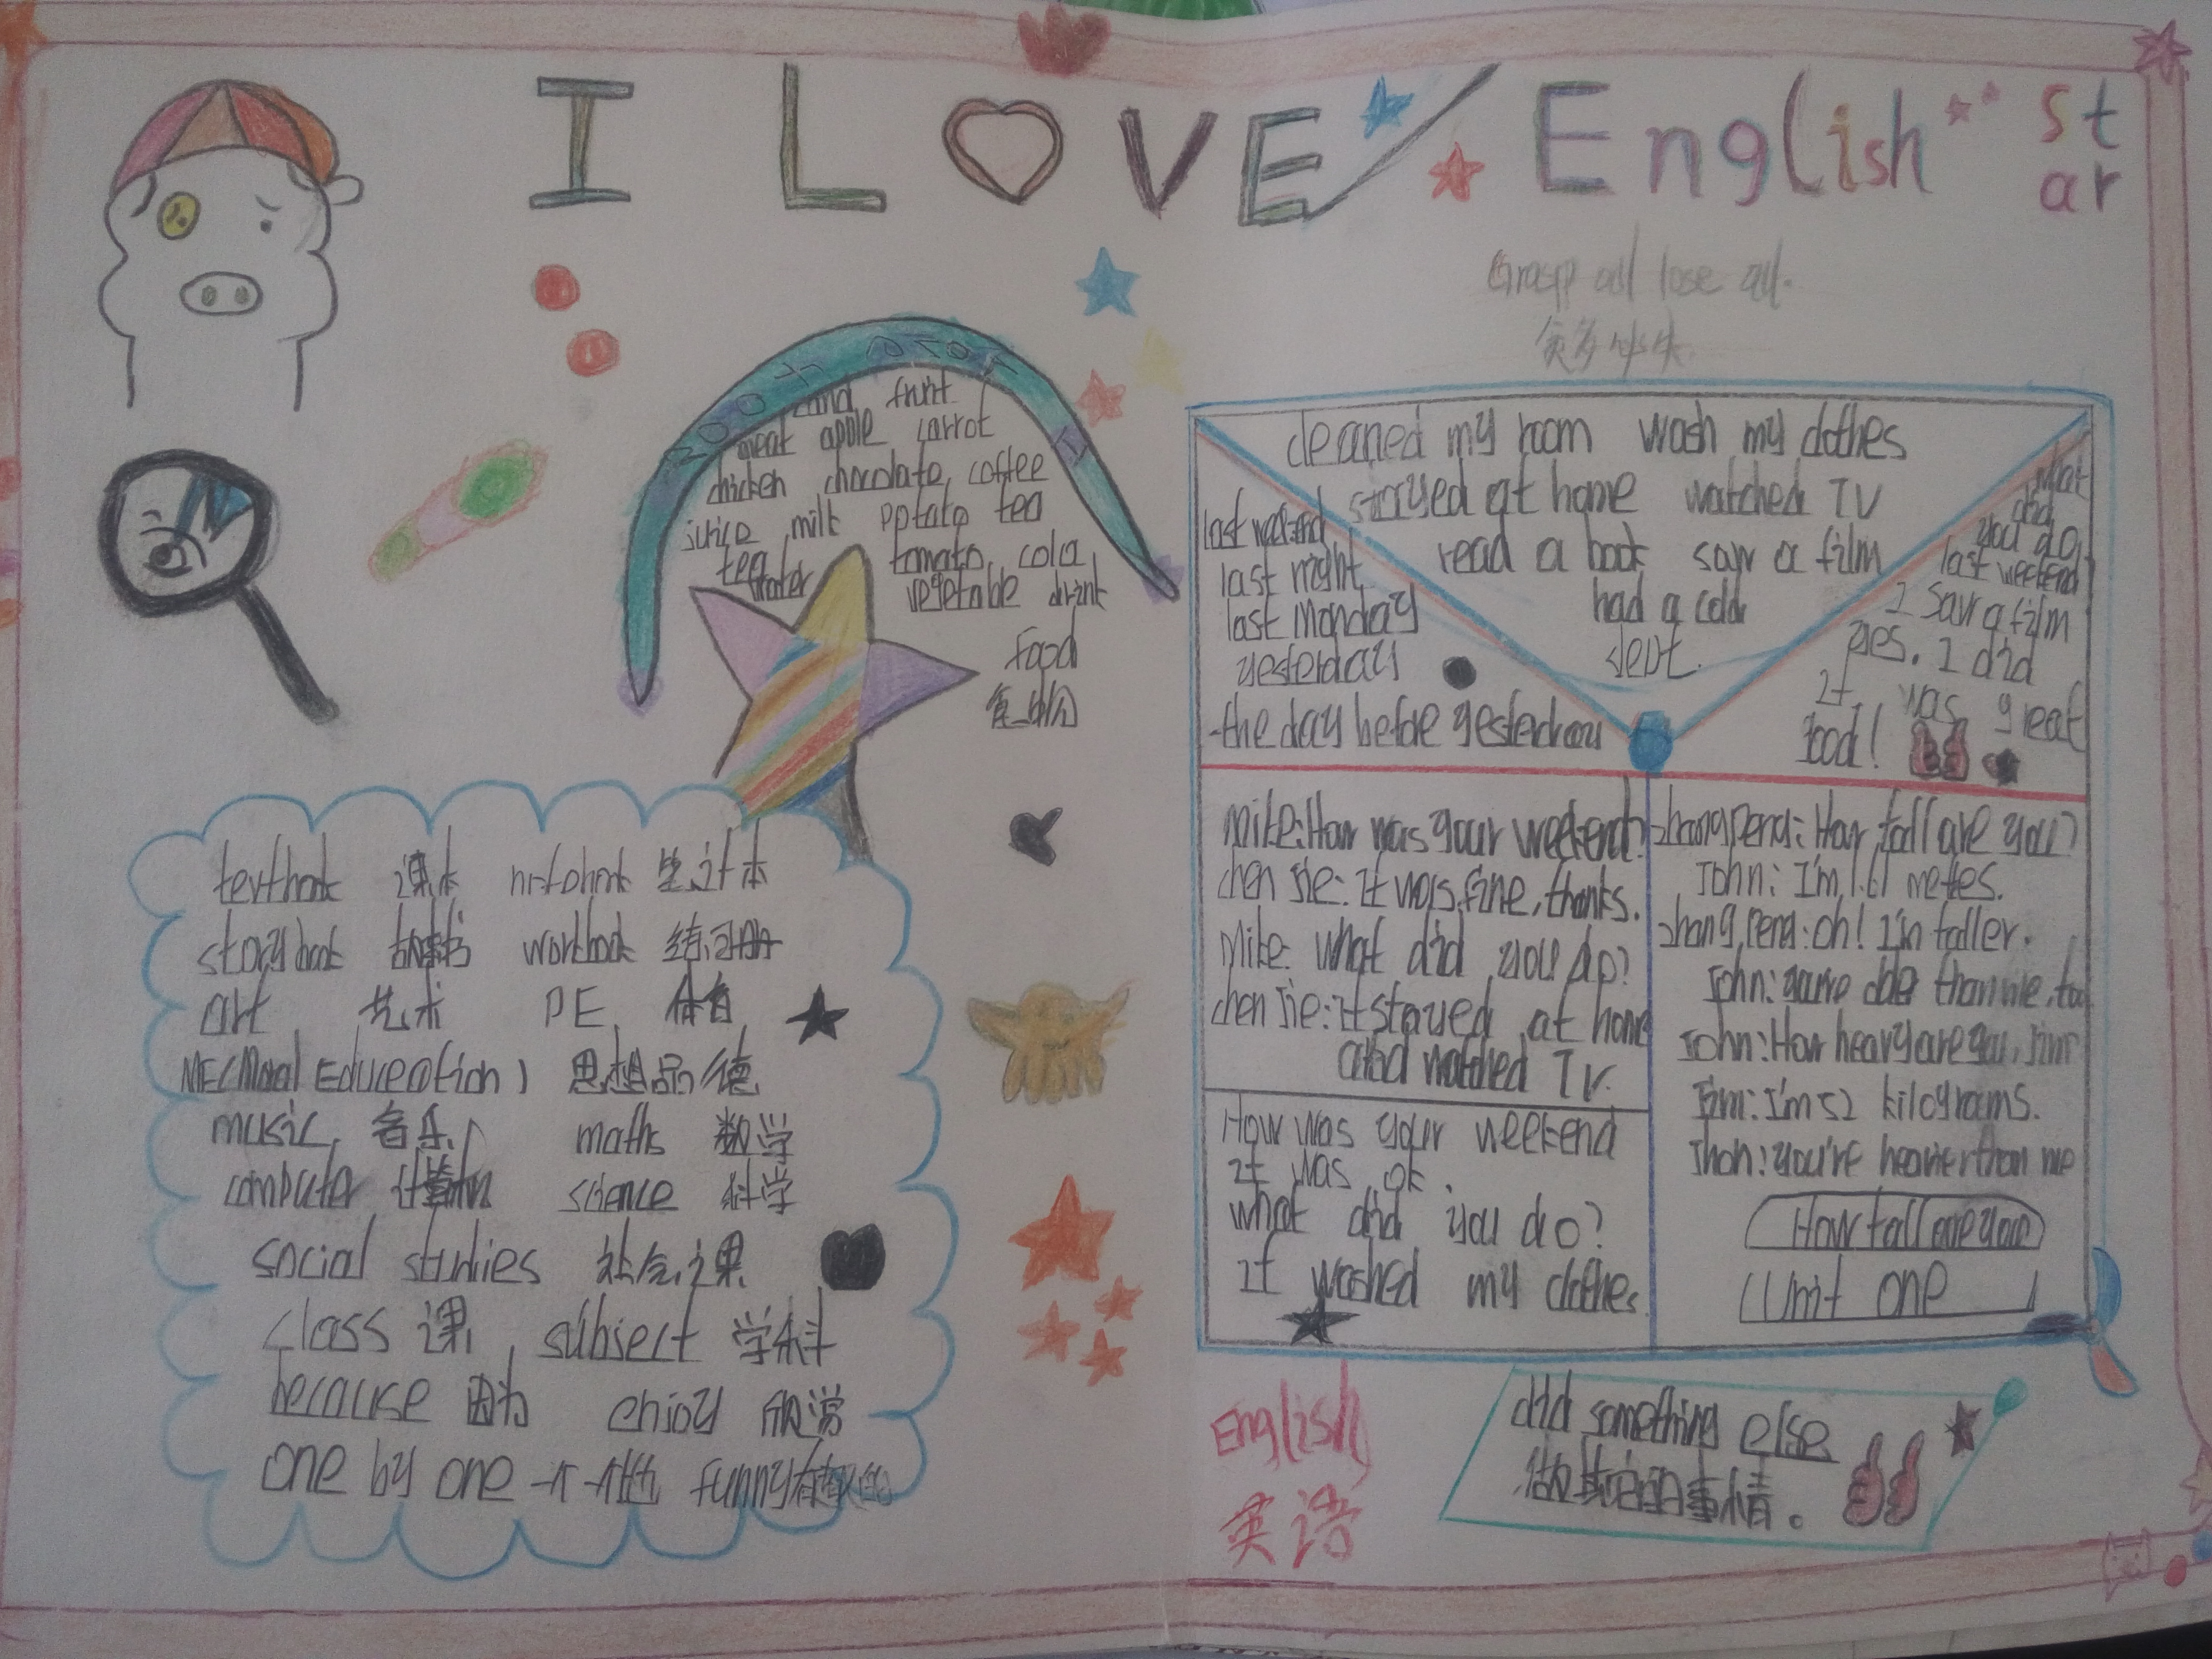 I LOVE English star
Grasp all lose all.
贪多必失
fruit
meat apple carrot
chicken chocolate coffee
juice milk potato tea
tea water tomato cola
vegetable drink
Food
食物
textbook 课本 notebook 笔记本
storybook 故事书 workbook 练习册
art 艺术 PE 体育
ME(Moral Educeation) 思想品德
music 音乐 maths 数学
computer 计算机 science 科学
social studies 社会课
class 课 subject 学科
because 因为 enjoy
one by one 一个一个地 funny 有趣的
cleaned my room wash my clothes
stayed at home watched TV
read a book saw a film
had a cold
last weekend
last night
last Monday
yesterday
the day before yesterday
what
did
you do
last weekend
I saw a film
yes. I did
It was great
Good!
Mike: How was your weekend?
chen Jie: It was fine, thanks.
Mike: what did you do?
chen Jie: It stayed at home
and watched TV.
How was your weekend
It was ok.
what did you do?
It washed my clothes
zhang peng: How tall are you?
John: I'm 1.61 metes.
zhang peng: oh! I'm taller.
John: you're older than me, too
John: How heavy are you, Jim
Jim: I'm 52 kilograms.
Jhon: you're heavier than me
How tall are you
Unit one
English
英语
did something else
做其它的事情。